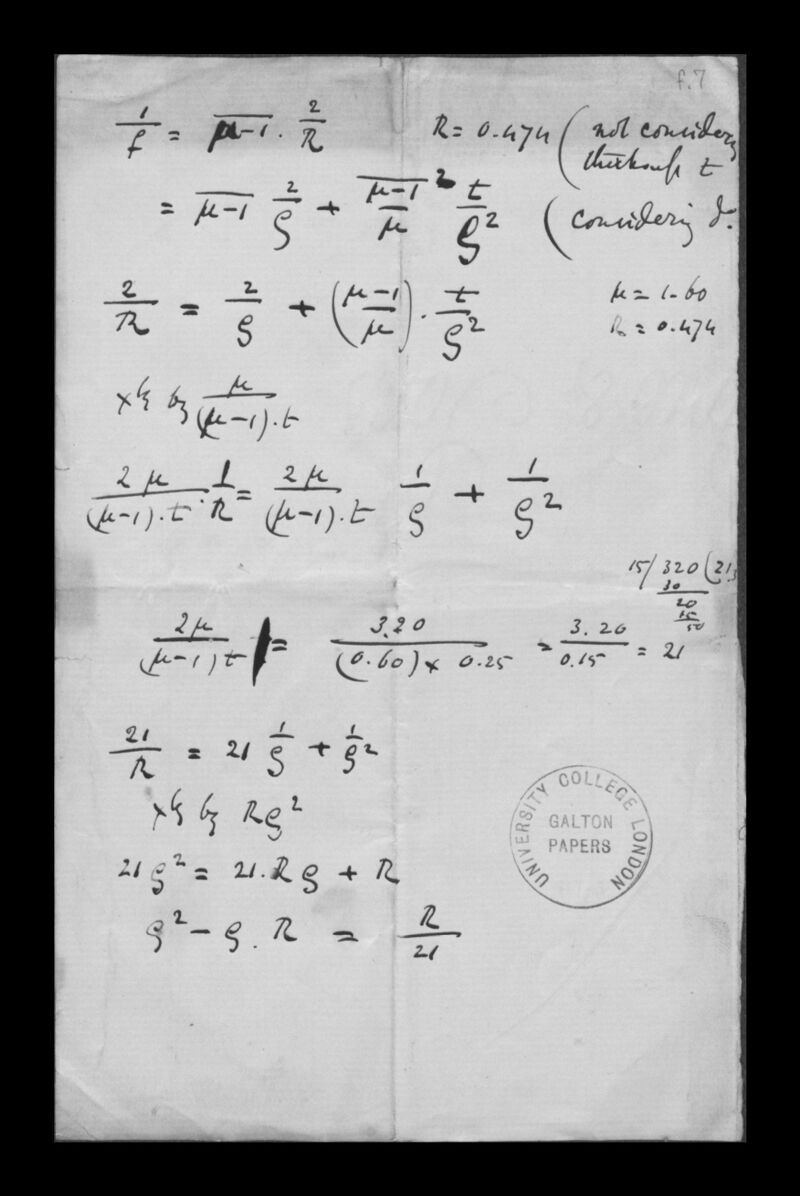 f.7
1/f = μ-1 . 2/R   R = 0.474 (not considering
thickness t
= μ-1 2/ρ + (μ-1)²/μ t/ρ² (considering do.
2/R = 2/ρ + (μ-1/μ) . t/ρ²   μ = 1.60
R = 0.474
x by μ/(μ-1).t
2μ/(μ-1).t . 1/R = 2μ/(μ-1).t 1/ρ + 1/ρ²
15/320(21.3
30
20
15
50
2μ/(μ-1)t = 3.20/(0.60) x 0.25 = 3.20/0.15 = 21
21/R = 21 1/ρ + 1/ρ²
x by Rρ²
21ρ² = 21.Rρ + R
ρ² - ρ. R = R/21
UNIVERSITY COLLEGE LONDON
GALTON
PAPERS